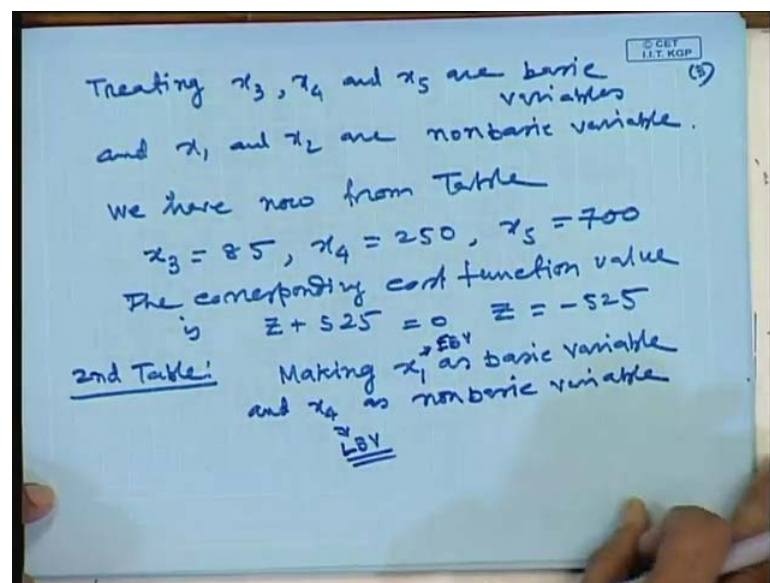 © CET
I.I.T. KGP
(5)
Treating x₃, x₄ and x₅ are basic
variables
and x₁ and x₂ are nonbasic variable.
We have now from Table
x₃ = 85, x₄ = 250, x₅ = 700
The corresponding cost function value
is Z + 525 = 0 Z = -525
2nd Table: Making x₁ as basic variable
→ EBV
and x₄ as nonbasic variable
LBV